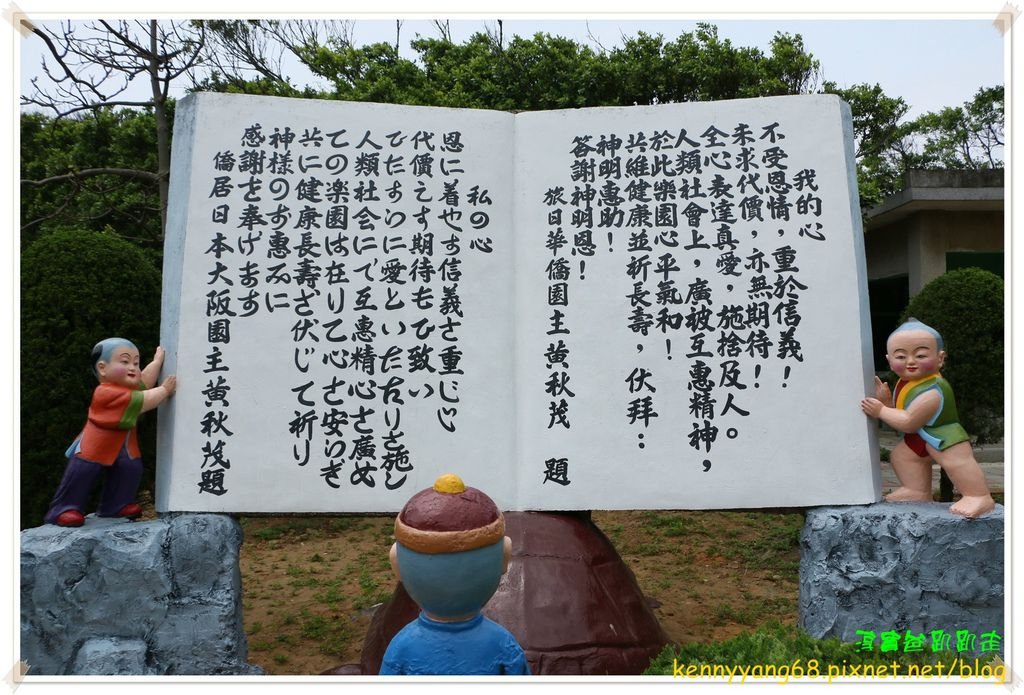 我的心
不受恩情，重於信義！
未求代價，亦無期待！
全心表達真愛，施捨及人。
人類社會上，廣被互惠精神，
於此樂園心平氣和！
共維健康並祈長壽，伏拜：
神明惠助！
答謝神明恩！
旅日華僑園主黃秋茂 題
私の心
恩に着やす信義さ重じじ
代價えす期待もひ致い
ひたすらに愛といただりさ施し
人類社会にて互惠精心さ廣め
ての楽園は在りて心さ安らぎ
共に健康長壽ざ伏じて祈り
神様のお惠みに
感謝を奉げます
僑居日本大阪園主黃秋茂題
kennyyang68.pixnet.net/blog